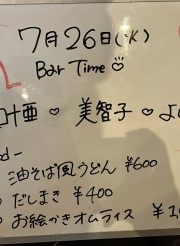 7月26日(火)
Bar Time ♡
叶亜 ♡ 美智子 ♡ よ
油そば風うどん ¥600
だしまき ¥400
お絵かきオムライス ¥1